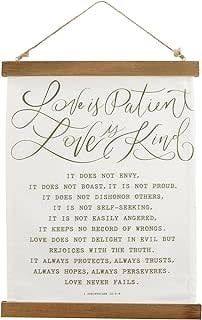 Love is Patient
Love is Kind
IT DOES NOT ENVY,
IT DOES NOT BOAST, IT IS NOT PROUD.
IT DOES NOT DISHONOR OTHERS,
IT IS NOT SELF-SEEKING,
IT IS NOT EASILY ANGERED,
IT KEEPS NO RECORD OF WRONGS.
LOVE DOES NOT DELIGHT IN EVIL BUT
REJOICES WITH THE TRUTH.
IT ALWAYS PROTECTS, ALWAYS TRUSTS,
ALWAYS HOPES, ALWAYS PERSEVERES.
LOVE NEVER FAILS.
1 CORINTHIANS 13:4-8